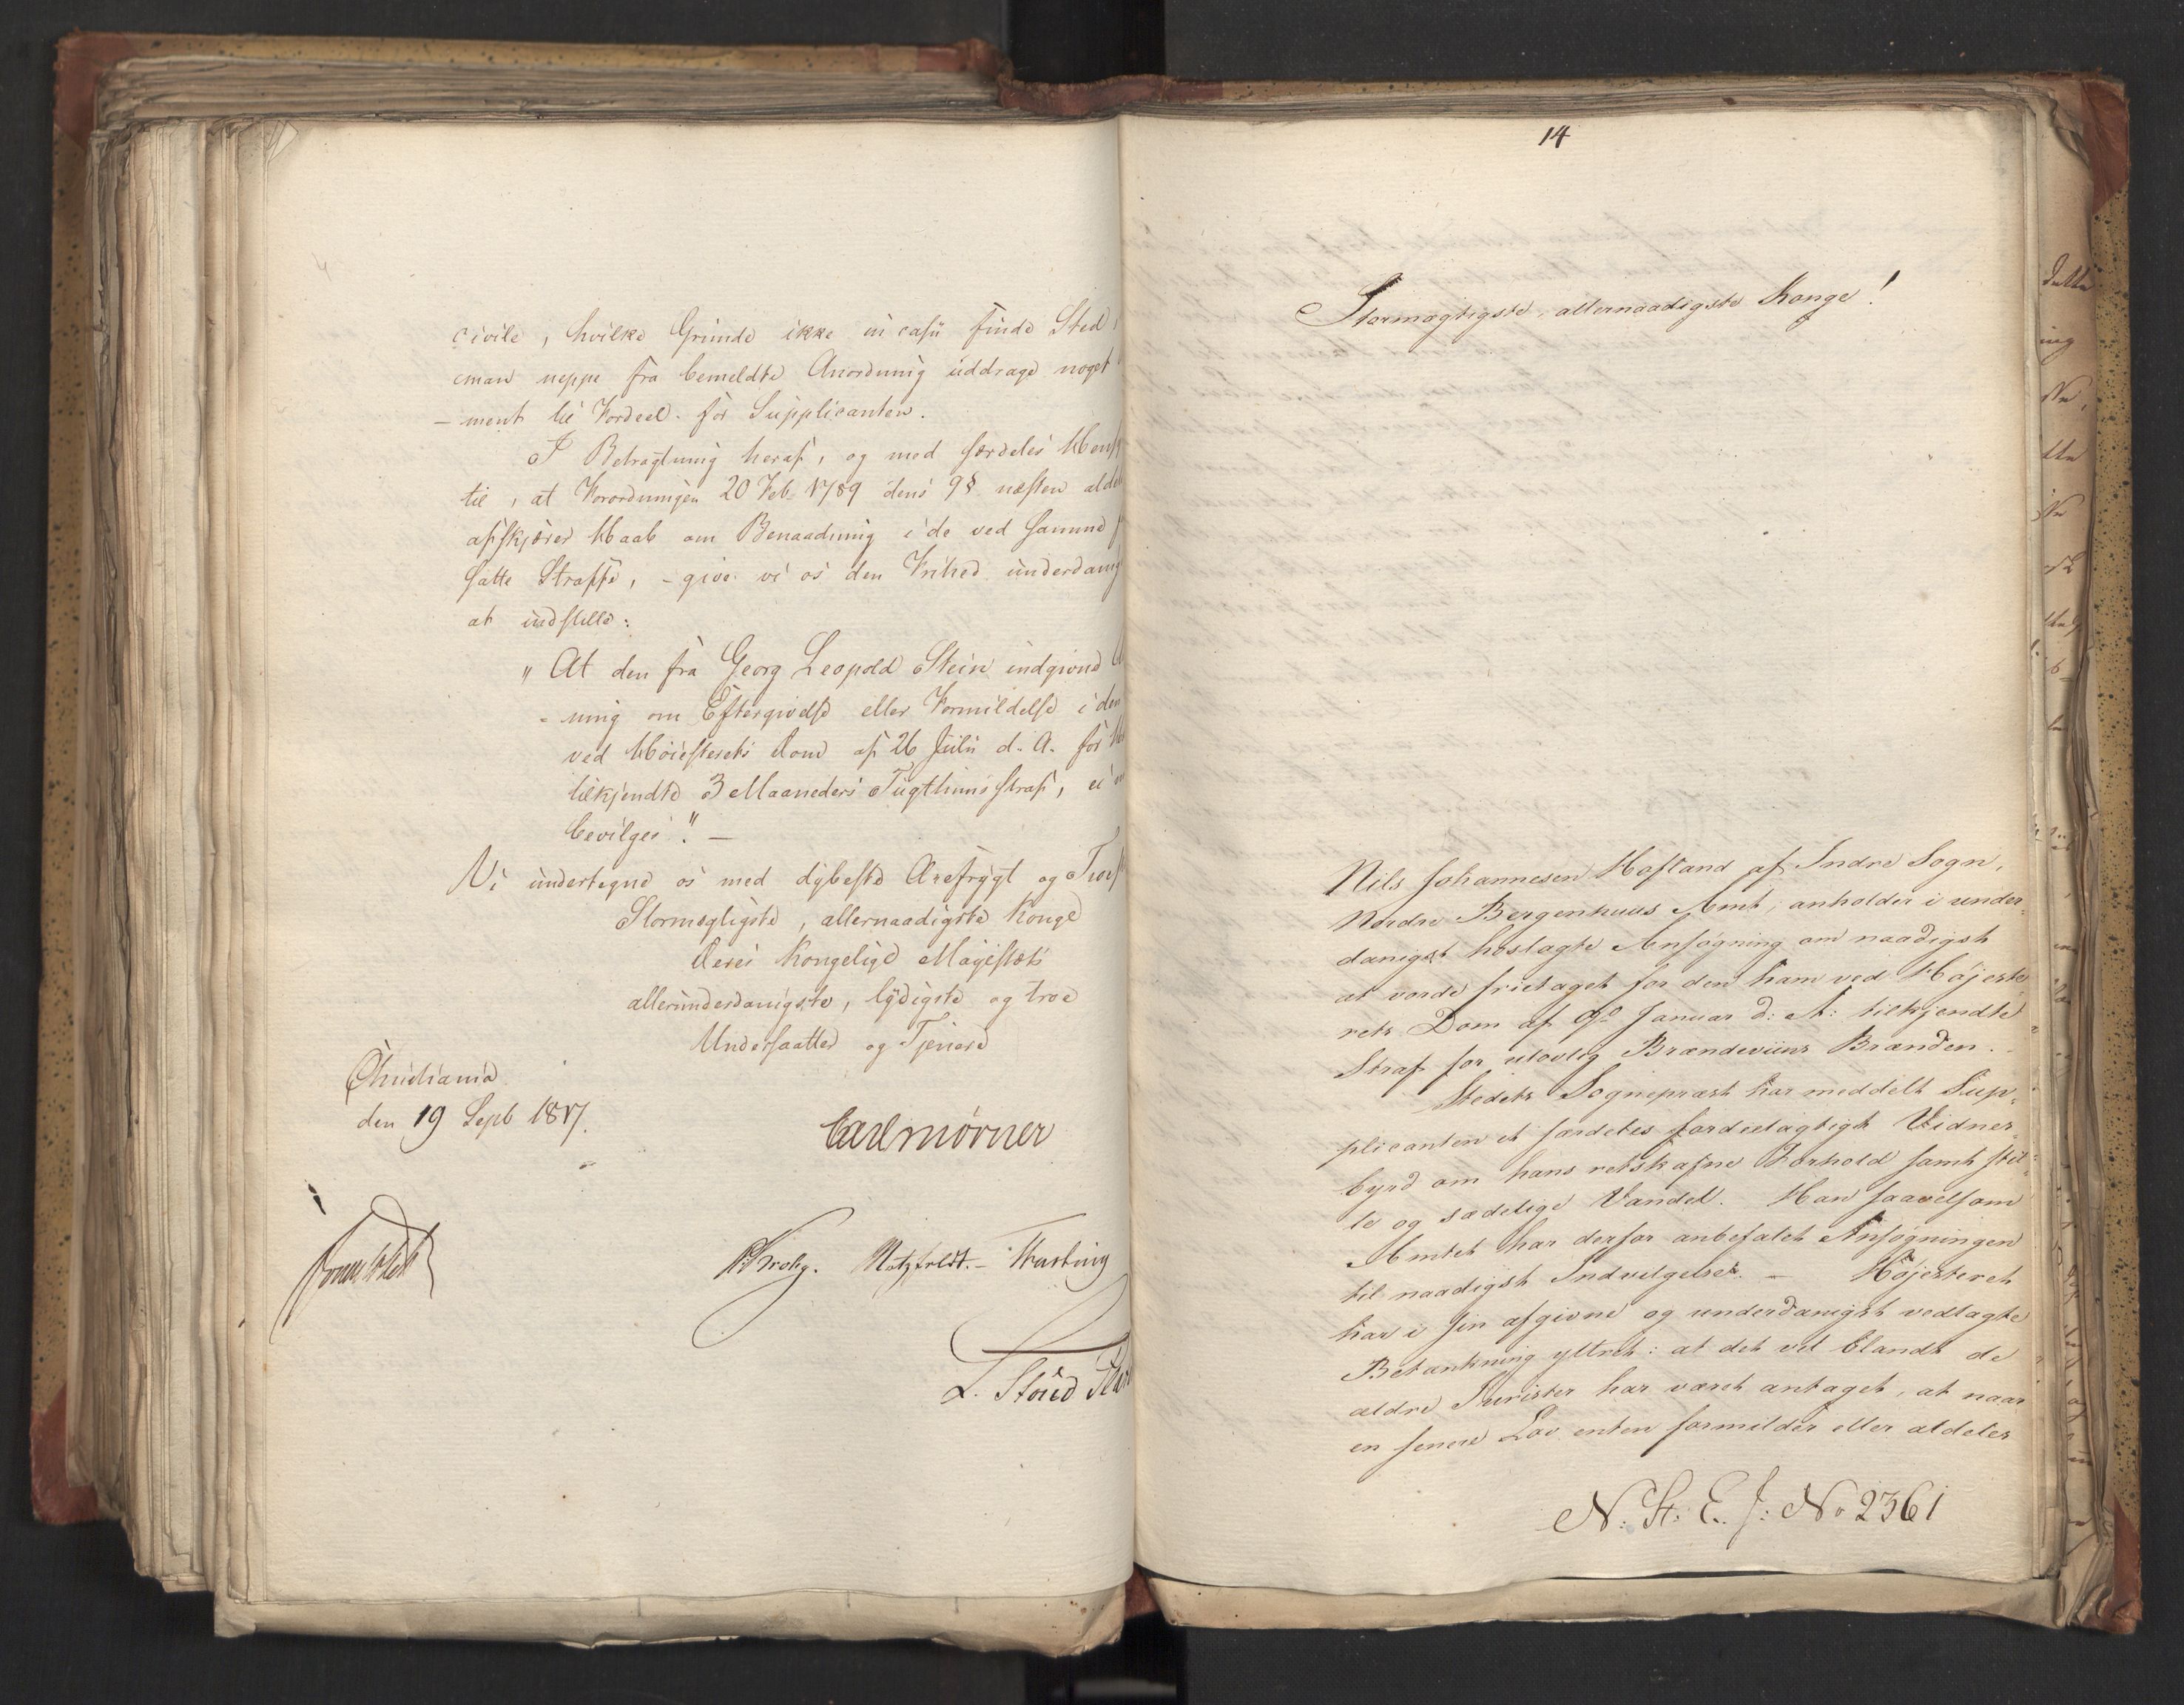 civile, hvilke Grunde ikke in casu finde Sted
man neppe fra bemeldte Anordning uddrage noget
- ment til Fordeel for Supplicanten.
I Betragtning heraf, og med særdeles Hensy
til, at Forordningen 20 Feb. 1789 dens 9 § næsten alde
afskjærer Haab om Benaadning i de ved samme
satte Straffe, - give vi os den Frihed underdanig
at indstille:
"At den fra Georg Leopold Stein indgivne
- ning om Eftergivelse eller Formildelse i den
ved Høiesterets Dom af 26 Julii d. A. for
tilkjendte 3 Maaneders Tugthuusstraf, ei
bevilges". -
Vi undertegne os med dybeste Ærefrygt og Troes
Stormægtigste, allernaadigste Konge
Deres Kongelige Majestæts
allerunderdanigste, lydigste og troe
Undersaatter og Tjenere
Christiania
den 19 Sept 1817.
Carl Mørner
Krohg. Motzfeldt. - Fasting
L. Stoud
14
Stormægtigste, allernaadigste Konge!
Nils Johannesen Hofland af Indre Sogn,
Nordre Bergenhuus Amt, anholder i under-
danigst hoslagte Ansøgning om naadigst
at vorde fritaget for den ham ved Højeste-
rets Dom af 9de Januar d: A: tilkjendte
Straf for ulovlig Brændeviins Brænden.
Stedets Sognepræst har meddelt Sup-
plicanten et særdeles fordeelagtigt Vidnes-
byrd om hans retskafne Forhold samt stil-
le og sædelige Vandel. Han saavelsom
Amtet har derfor anbefalet Ansøgningen
til naadigst Indvilgelse. - Højesteret
har i sin afgivne og underdanigst vedlagte
Betænkning yttret: at det vel blandt de
ældre Jurister har været antaget, at naar
en senere Lov enten formilder eller aldeles
N. St. E. J: No 2361